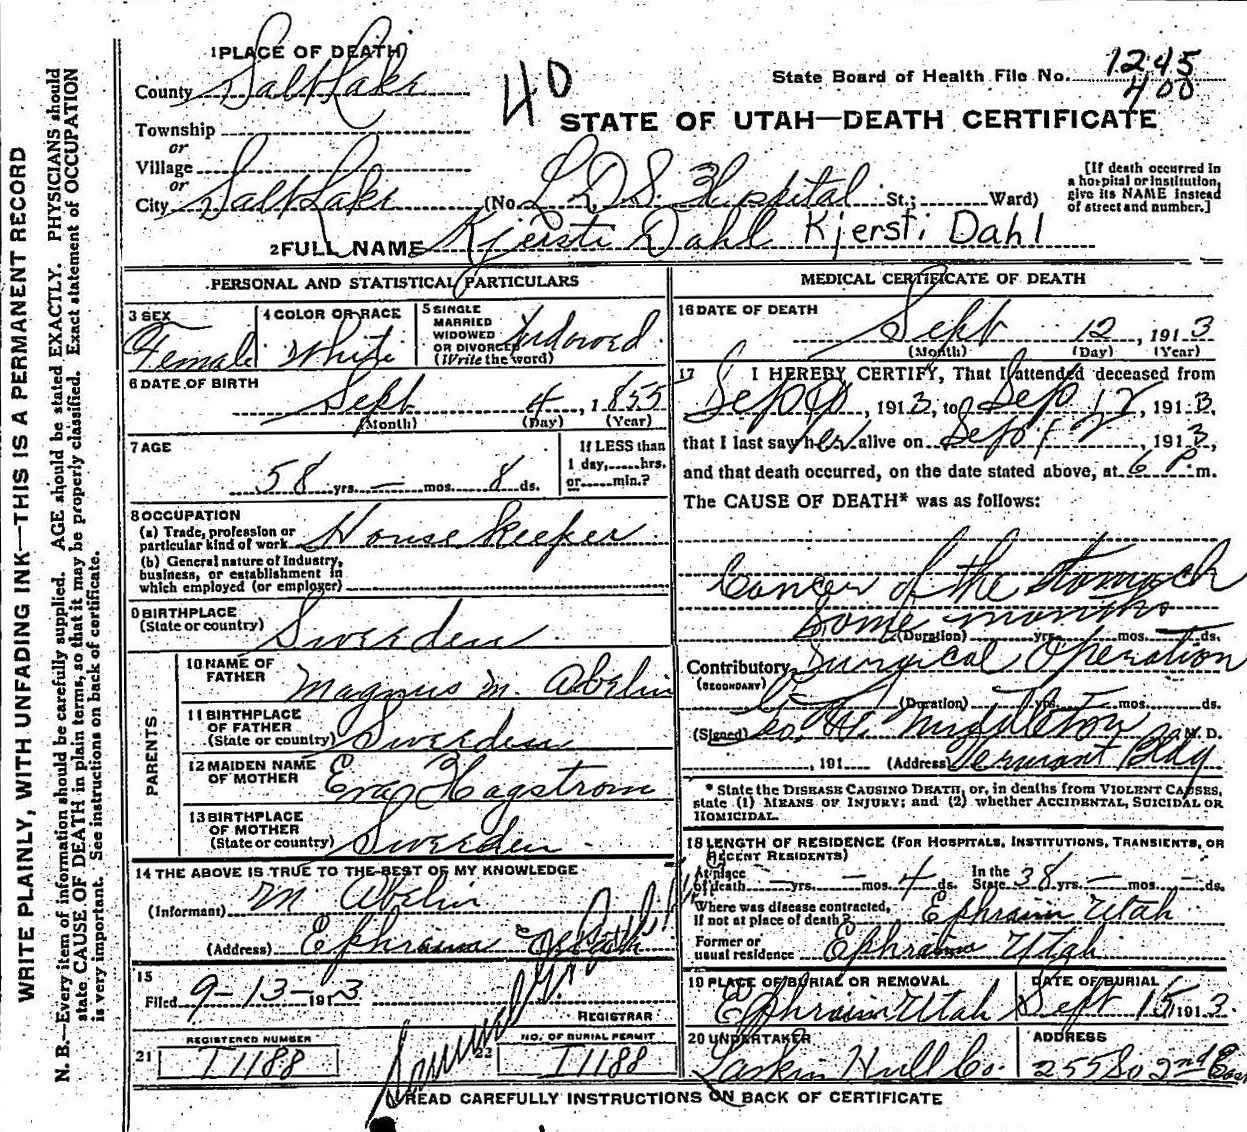 WRITE PLAINLY, WITH UNFADING INK—THIS IS A PERMANENT RECORD
N. B.—Every item of information should be carefully supplied. AGE should be stated EXACTLY. PHYSICIANS should
state CAUSE OF DEATH in plain terms, so that it may be properly classified. Exact statement of OCCUPATION
is very important. See instructions on back of certificate.
1 PLACE OF DEATH
County Salt Lake
Township
or
Village
or
City Salt Lake (No. L.D.S. Hospital St.; Ward)
40
State Board of Health File No. 1245
400
STATE OF UTAH—DEATH CERTIFICATE
[If death occurred in
a hospital or institution,
give its NAME instead
of street and number.]
2 FULL NAME Kjersti Dahl Kjersti Dahl
PERSONAL AND STATISTICAL PARTICULARS
3 SEX
Female
4 COLOR OR RACE
White
5 SINGLE
MARRIED
WIDOWED
OR DIVORCED
(Write the word)
Widowed
6 DATE OF BIRTH
Sept 4, 1855
(Month) (Day) (Year)
7 AGE
58 yrs. — mos. 8 ds.
If LESS than
1 day,......hrs.
or......min.?
8 OCCUPATION
(a) Trade, profession or
particular kind of work House Keeper
(b) General nature of Industry,
business, or establishment in
which employed (or employer)
9 BIRTHPLACE
(State or country) Sweden
PARENTS
10 NAME OF
FATHER Magnus M. Abelin
11 BIRTHPLACE
OF FATHER
(State or country) Sweden
12 MAIDEN NAME
OF MOTHER Eva Hagstrom
13 BIRTHPLACE
OF MOTHER
(State or country) Sweden
14 THE ABOVE IS TRUE TO THE BEST OF MY KNOWLEDGE
(Informant) M. Abelin
(Address) Ephraim
15
Filed 9-13-1913
REGISTRAR
REGISTERED NUMBER
21 I1188
NO. OF BURIAL PERMIT
22 I1188
MEDICAL CERTIFICATE OF DEATH
16 DATE OF DEATH
Sept 12, 1913
(Month) (Day) (Year)
17 I HEREBY CERTIFY, That I attended deceased from
Sep , 1913, to Sep 12, 1913,
that I last saw her alive on Sept 12, 1913,
and that death occurred, on the date stated above, at 6 P. m.
The CAUSE OF DEATH* was as follows:
Cancer of the stomach
Some months
(Duration) yrs. mos. ds.
Contributory Surgical Operation
(SECONDARY)
(Duration) yrs. mos. ds.
(Signed) Geo. W. Middleton M. D.
, 191 (Address) Vermont Bldg
* State the DISEASE CAUSING DEATH, or, in deaths from VIOLENT CAUSES,
state (1) MEANS OF INJURY; and (2) whether ACCIDENTAL, SUICIDAL OR
HOMICIDAL.
18 LENGTH OF RESIDENCE (FOR HOSPITALS, INSTITUTIONS, TRANSIENTS, OR
RECENT RESIDENTS)
At place
of death — yrs. — mos. 4 ds. In the
State 38 yrs. — mos. — ds.
Where was disease contracted,
if not at place of death? Ephraim Utah
Former or
usual residence Ephraim Utah
19 PLACE OF BURIAL OR REMOVAL
Ephraim Utah
DATE OF BURIAL
Sept 15, 1913.
20 UNDERTAKER
Larkin Hull Co.
ADDRESS
255 So 2nd East
READ CAREFULLY INSTRUCTIONS ON BACK OF CERTIFICATE